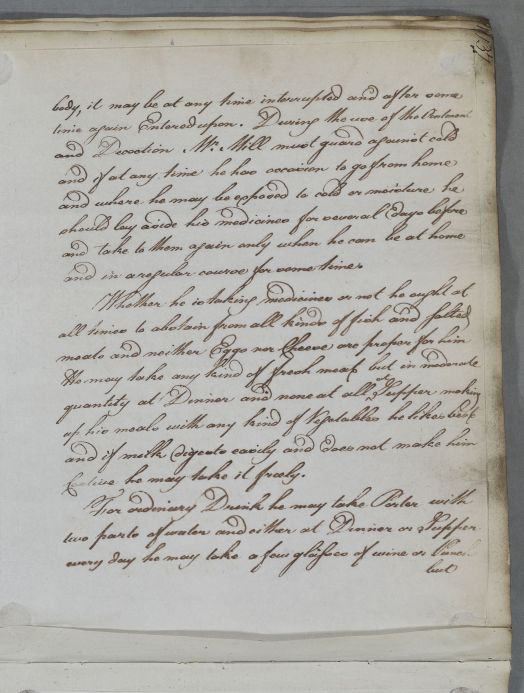 body, it may be at any time interrupted and after some
time again Entered upon. During the use of the Ointment
and Decoction Mr. Mill must guard against cold
and if at any time he has occasion to go from home
and where he may be exposed to cold or moisture he
should lay aside his medicines for several days before
and take to them again only when he can be at home
and in a regular course for some time.
Whether he is taking medicines or not he ought at
all times to abstain from all kinds of fish and salted
meats and neither Eggs nor Cheese are proper for him
He may take any kind of fresh meat but in moderate
quantity at Dinner and none at all at Supper making
up his meals with any kind of Vegetables he likes best
and if milk digests easily and does not make him
Costive he may take it freely.
For ordinary Drink he may take Porter with
two parts of water and either at Dinner or Supper
every day he may take a few glasses of wine or Punch
but